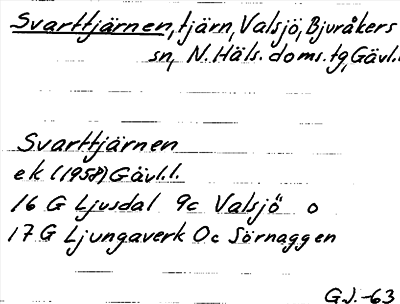 Svarttjärnen, tjärn, Valsjö, Bjuråkers
sn, N. Häls. doms. tg, Gävl.l.
Svarttjärnen
ek (1958) Gävl.l.
16 G Ljusdal 9c Valsjö o
17 G Ljungaverk 0c Sörnaggen
G.J. -63